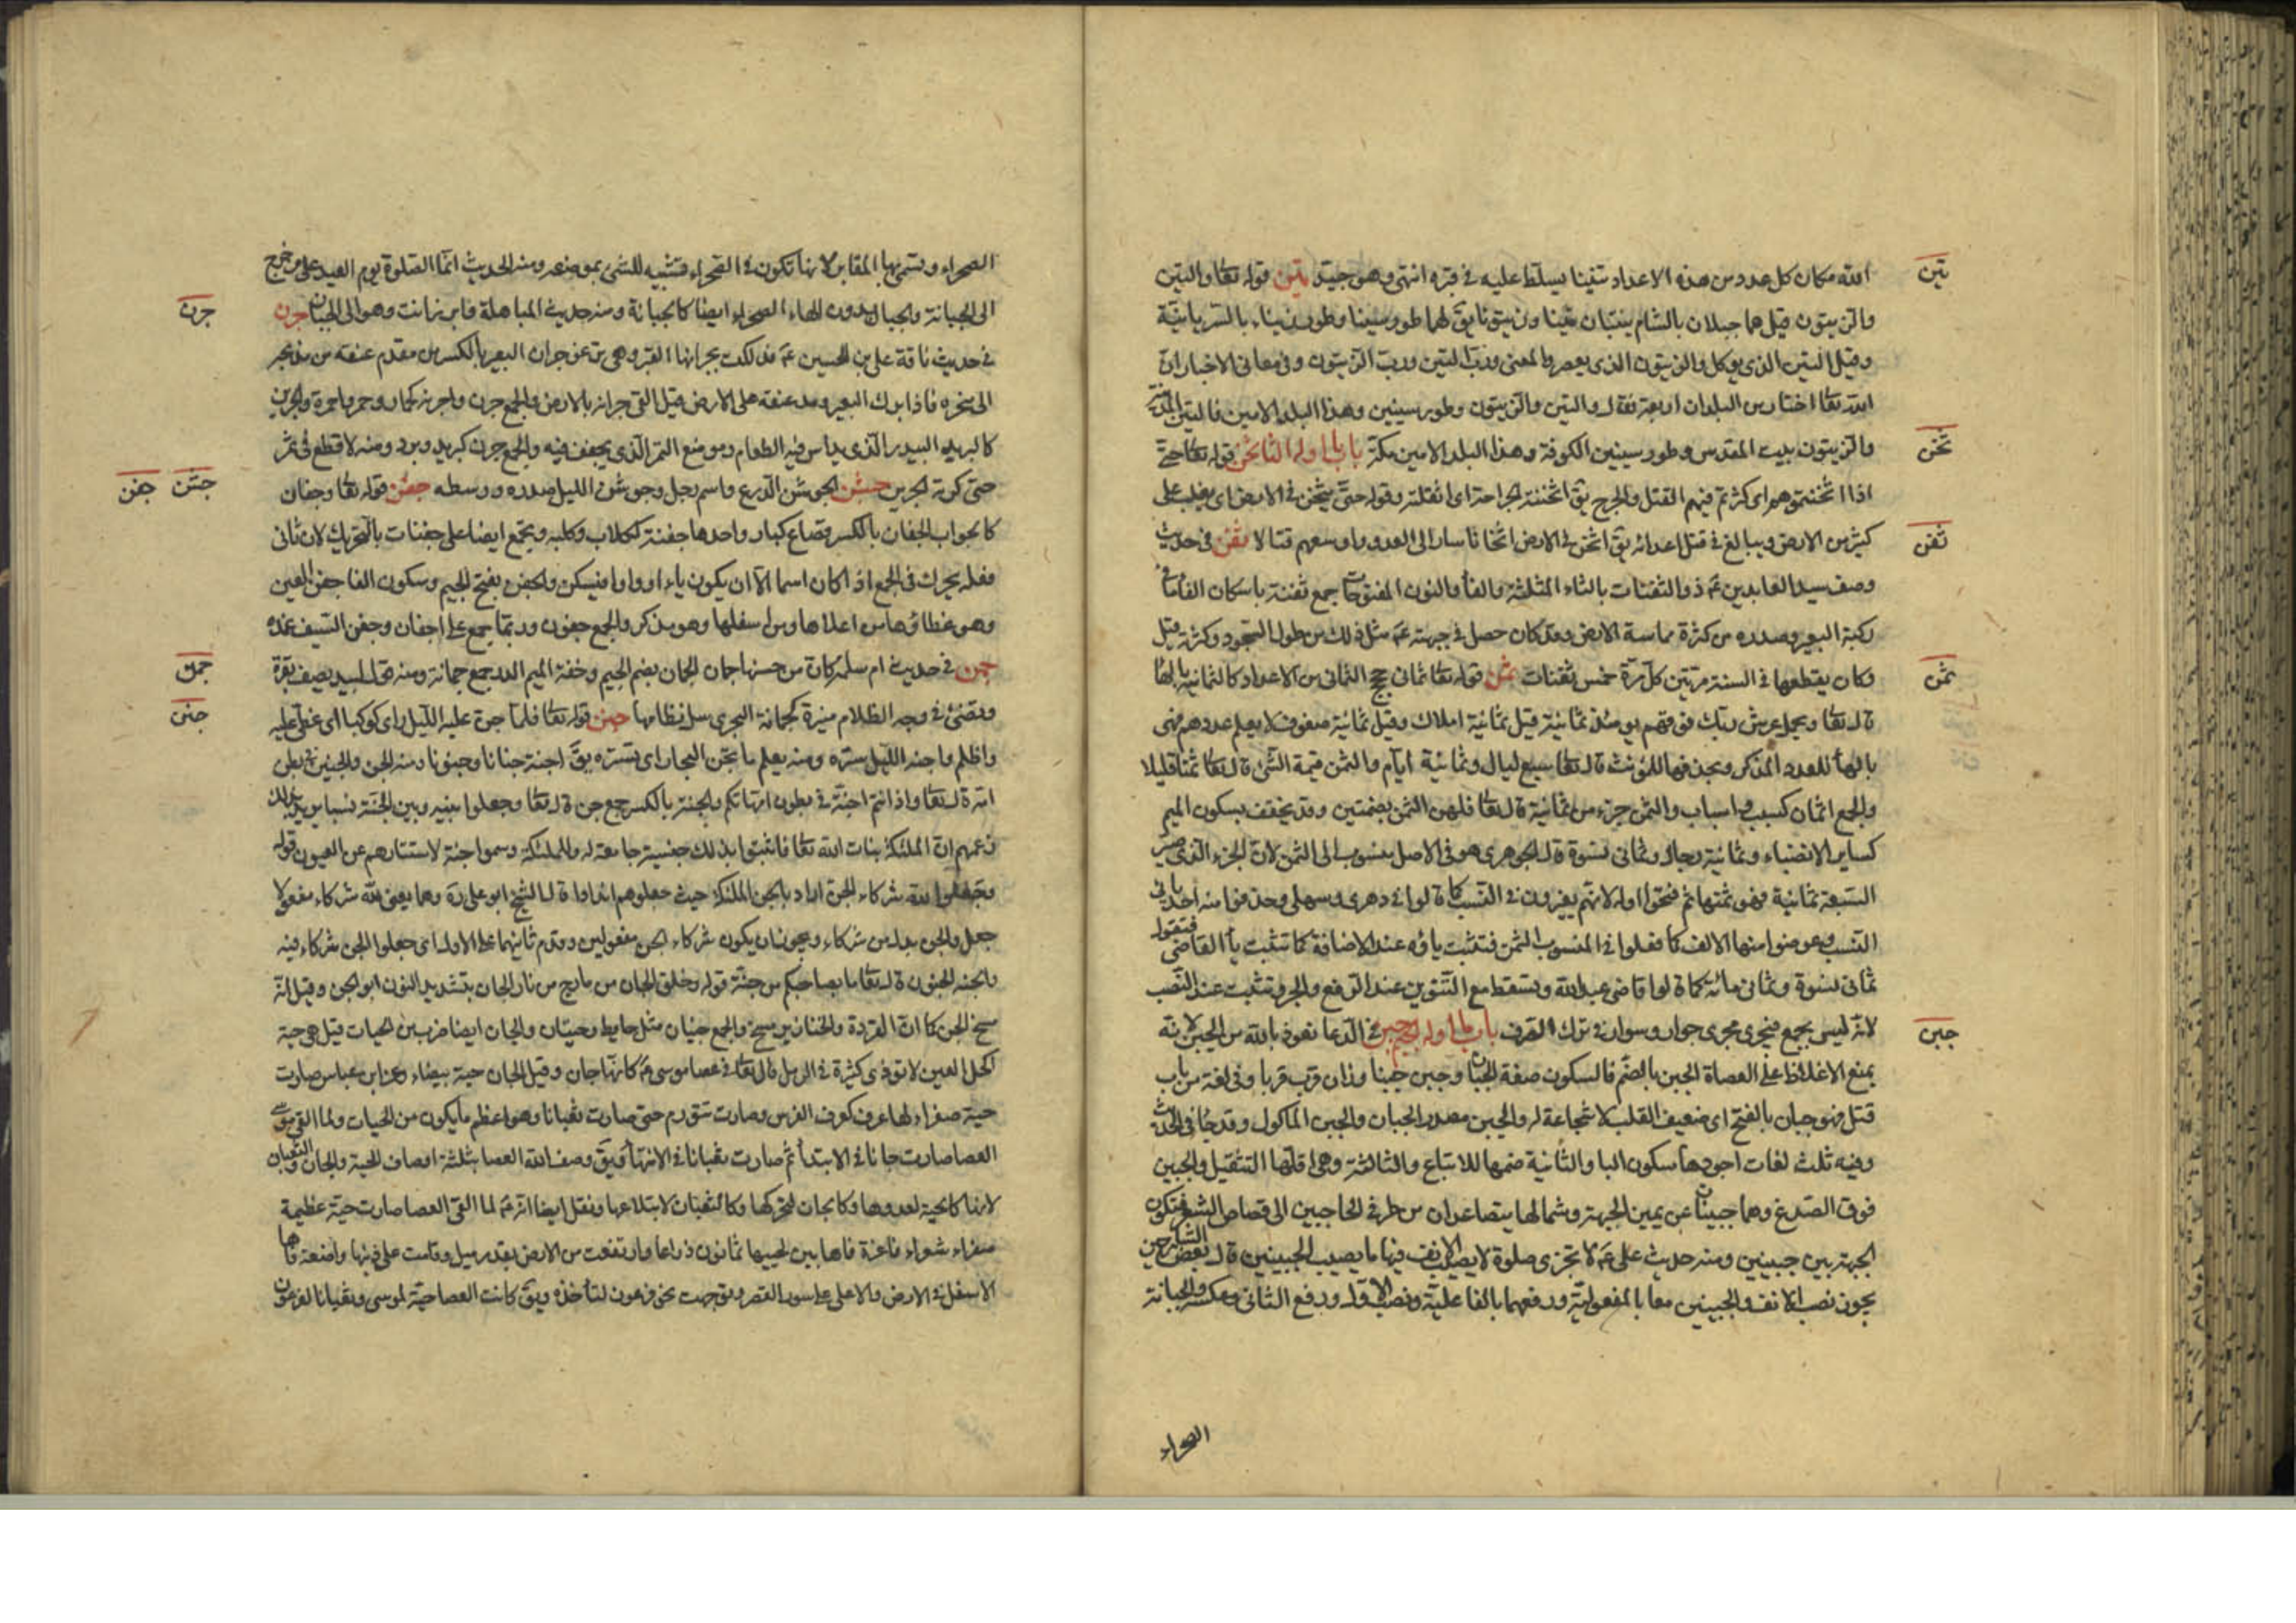 تين
الله مكان كل عدد من هذه الاعداد تنينا يسلط عليه فى قبره انتهى وهو جيد تين قوله تعا والتين
والزيتون قيل هما جبلان بالشام ينبتان تينا وزيتونا يق لهما طور سينا وطور زيتاء بالسريانية
وقيل التين الذى يؤكل والزيتون الذى يعصر والمعنى ورب التين ورب الزيتون وفى معانى الاخبار ان
الله تعا اختار من البلدان اربعة فقال والتين والزيتون وطور سينين وهذا البلد الامين فالتين المدينة
ثخن
والزيتون بيت المقدس وطور سينين الكوفة وهذا البلد الامين مكة باب ما اوله الثا ثخن قوله تعا حتى
اذا اثخنتموهم اى كثرتم فيهم القتل والجرح يق اثخنته الجراحة اى اثقلته وقوله حتى يثخن فى الارض اى يغلب على
ثفن
كثير من الارض ويبالغ فى قتل اعدائه يق اثخن فى الارض اثخانا سار الى العدو واوسعهم قتالا ثفن فى حديث
وصف سيد العابدين ع ذو الثفنات بالثاء المثلثة والفا والنون المفتوحات جمع ثفنة باسكان الفا ما فى
ركبة البعير وصدره من كثرة مماسة الارض وقد كان حصل فى جبهته ع مثل ذلك من طول السجود وكثرته قيل
ثمن
وكان يقطعها فى السنة مرتين كل مرة خمس ثفنات ثمن قوله تعا ثمانى حجج الثمانى من الاعداد كالثمانية بالها
قال تعا ويحمل عرش ربك فوقهم يومئذ ثمانية قيل ثمانية املاك وقيل ثمانية صفوف لا يعلم عددهم فهى
بالها للعدد المذكر وبحذفها للمؤنث قال تعا سبع ليال وثمانية ايام والثمن قيمة الشئ قال تعا ثمنا قليلا
والجمع اثمان كسبب واسباب والثمن جزء من ثمانية قال تعا فلهن الثمن بضمتين وقد يخفف بسكون الميم
كساير الانصباء وثمانية رجال وثمانى نسوة قال الجوهرى هو فى الاصل منسوب الى الثمن لان الجزء الذى صير
السبعة ثمانية فهو ثمنها ثم فتحوا اوله لانهم يغيرون فى النسب كما قالوا فى دهرى وسهلى وحذفوا منه احدى ياى
النسب وعوضوا منها الالف كما فعلوا فى المنسوب الى اليمن فتثبت ياؤه عند الاضافة كما تثبت يا القاضى فتقول
ثمانى نسوة وثمانى مائة كما قالوا قاضى عبد الله وتسقط مع التنوين عند الرفع والجر وتثبت عند النصب
جبن
لانه ليس بجمع فيجرى مجرى جوار وسوار فى ترك الصرف باب ما اوله الجيم جبن فى الدعا نعوذ بالله من الجبن لانه
يمنع الاغلاظ على العصاة الجبن بالضم فالسكون صفة الجبان وجبن جبنا وزان قرب قربا وفى لغة من باب
قتل فهو جبان بالفتح اى ضعيف القلب لا شجاعة له والجبن مصدر الجبان والجبن الماكول وقد جا فى الحديث
وفيه ثلث لغات اجودها سكون البا والثانية ضمها للاتباع والثالثة وهى اقلها التثقيل والجبين
فوق الصدغ وهما جبينان عن يمين الجبهة وشمالها يتصاعدان من طرف الحاجبين الى قصاص الشعر فتكون
الجبهة بين جبينين ومنه حديث على ع لا تجزى صلوة لا يصيب الانف فيها ما يصيب الجبينين قال بعض الشارحين
يجوز نصب الانف والجبينين معا بالمفعولية ورفعهما بالفاعلية ونصب الاول ورفع الثانى وعكسه والجبانة
الصحراء
الصحراء وتسمى بها المقابر لانها تكون فى الصحراء فتشبيه للشئ بموضعه ومنه الحديث انما الصلوة يوم العيد على من خرج
جرن
الى الجبانة والجبان بدون الهاء الصحراء ايضا كالجبانة ومنه حديث المباهلة فابرز انت وهو الى الجبان جرن
فى حديث ناقة على بن الحسين ع فدلكت بجرانها القبر وهى ترغو جران البعير بالكسر من مقدم عنقه من مذبحه
الى منحره فاذا برك البعير ومد عنقه على الارض قيل القى جرانه بالارض والجمع جرن واجرنة كحمار وحمر واحمرة والجرين
كالبريد البيدر الذى يداس فيه الطعام وموضع التمر الذى يجفف فيه والجمع جرن كبريد وبرد ومنه لا قطع فى ثمر
جشن جفن
حتى يحويه الجرين جشن الجوشن الدرع واسم رجل وجوشن الليل صدره ووسطه جفن قوله تعا وجفان
كالجواب الجفان بالكسر قصاع كبار واحدها جفنة ككلاب وكلبة ويجمع ايضا على جفنات بالتحريك لان ثانى
فعلة يحرك فى الجمع اذا كان اسما الا ان يكون ياء او واوا فيسكن والجفن بفتح الجيم وسكون الفا جفن العين
وهو غطاؤها من اعلاها ومن اسفلها وهو مذكر والجمع جفون وربما يجمع على اجفان وجفن السيف غمده
جمن
جمن فى حديث ام سلمة كان من حسنها جمان الجمان بضم الجيم وخفة الميم الدر جمع جمانة ومنه قول لبيد يصف بقرة
جنن
وتضئ فى وجه الظلام منيرة كجمانة البحرى سل نظامها جنن قوله تعا فلما جن عليه الليل راى كوكبا اى غطى عليه
واظلم واجنه الليل ستره ومنه يعلم ما تجن البحار اى تستره يق اجنه جنانا وجنونا ومنه الجن والجنين فى بطن
امه قال تعا واذ انتم اجنة فى بطون امهاتكم والجنة بالكسر جمع جن قال تعا وجعلوا بينه وبين الجنة نسبا يريد بذلك
زعمهم ان الملئكة بنات الله تعا فاثبتوا بذلك جنسية جامعة له وللملئكة وسموا جنة لاستتارهم عن العيون قوله
وجعلوا لله شركاء الجن اراد بالجن الملئكة حيث جعلوهم اندادا قال الشيخ ابو على ره وهما يعنى لله شركاء مفعولا
جعل والجن بدل من شركاء ويجوز ان يكون شركاء الجن مفعولين وقدم ثانيهما على الاول اى جعلوا الجن شركاء فيه
والجنة الجنون قال تعا ما بصاحبكم من جنة قوله وخلق الجان من مارج من نار الجان بتشديد النون ابو الجن وقيل انه
مسخ الجن كما ان القردة والخنازير مسخ والجمع جنان مثل حايط وحيطان والجان ايضا ضرب من الحيات قيل هى حية
اكحل العين لا تؤذى كثيرة فى الرمل قال تعا فى عصا موسى ع كانها جان وقيل الجان حية بيضاء وعن ابن عباس صارت
حية صفراء لها عرف كعرف الفرس وصارت تتورم حتى صارت ثعبانا وهو اعظم ما يكون من الحيات ولما القى موسى
العصا صارت جانا فى الابتدا ثم صارت ثعبانا فى الانتها ويق وصف الله العصا بثلثة اوصاف الحية والجان والثعبان
لانها كالحية لعدوها وكالجان لتحركها وكالثعبان لابتلاعها ونقل ايضا انه ع لما القى العصا صارت حية عظيمة
صفراء شعراء فاغرة فاها بين لحييها ثمانون ذراعا وارتفعت من الارض بقدر ميل وقامت على ذنبها واضعة فاها
الاسفل فى الارض والاعلى على سور القصر وتوجهت نحو فرعون لتأخذه ويق كانت العصا حية لموسى وثعبانا لفرعون